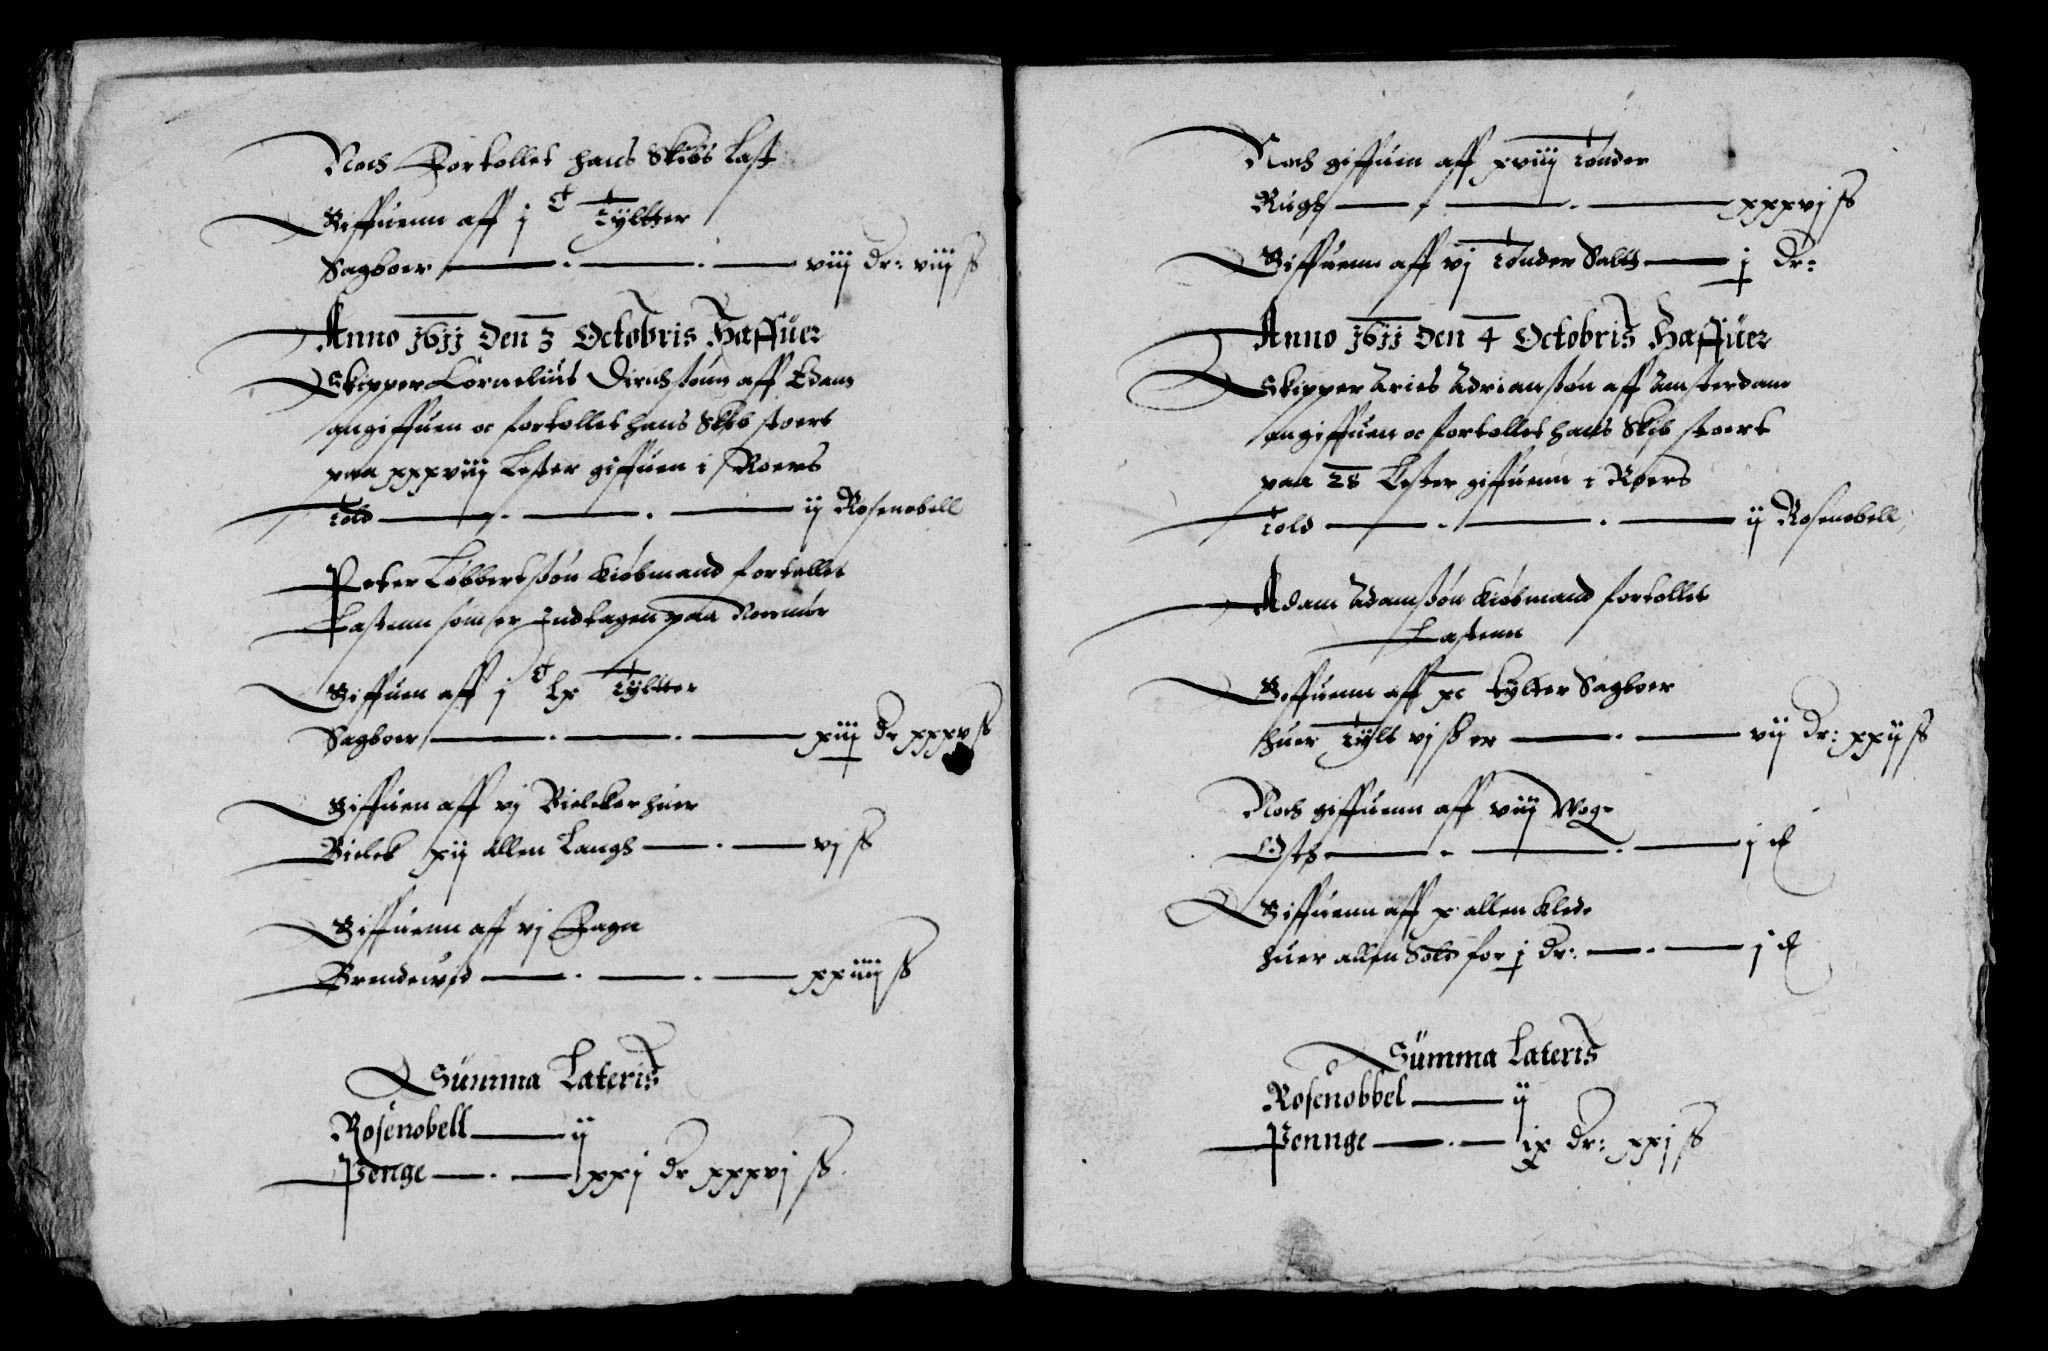 Noch Fortollet hans Skibs Last
Giffuenn aff j C Tyltter
Sagboer — viij dr: viij ß
Anno 1611 Den 3 Octobris Haffuer
Skipper Cornelius Dirichsonn aff Edam
angiffuen oc fortollet hans Skib stoert
paa xxxviij Lester giffuen i Roers
Told — ij Rosenobell
Peter Lobbertßøn kiøbmand fortollet
Lastenn som er Indtagen paa Normør
Giffuen aff j C lx Tyltter
Sagboer — xiij dr xxxv ß
Giffuen aff vj Bielcker huer
Bielck xij allen Langh — vj ß
Giffuenn aff vj Fagn
Brendewed — xxiiij ß
Summa Lateris
Rosenobell — ij
Penge — xxj dr xxxvj ß
Noch giffuenn aff xviij Tønder
Rugh — xxxvj ß
Giffuenn aff vj Tønder Salth — j dr:
Anno 1611 Den 4 Octobris Haffuer
Skipper Aries Adrianßøn aff Amsterdam
angiffuen oc fortollet hans Skib stoert
paa 28 Lester giffuenn i Roers
Told — ij Rosenobell
Adam Adamßøn kiøbmand fortollet
Lastenn
Giffuenn aff xc tylter Sagboer
huer Tylt vj ß er — vij dr: xxij ß
Noch giffuenn aff viij Woge
Osth — j
Giffuenn aff x allen klede
huer allen Sold for j dr: — j
Summa Lateris
Rosenobbel — ij
Pennge — ix dr: xxj ß